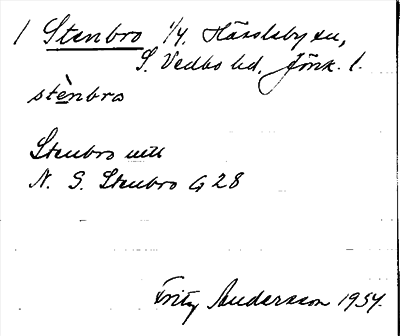 1 Stenbro 1/4. Hässleby sn,
S. Vedbo hd. Jönk. l.
stènbro
Stenbro
N. S. Stenbro G 28
Fritz Andersson 1934.